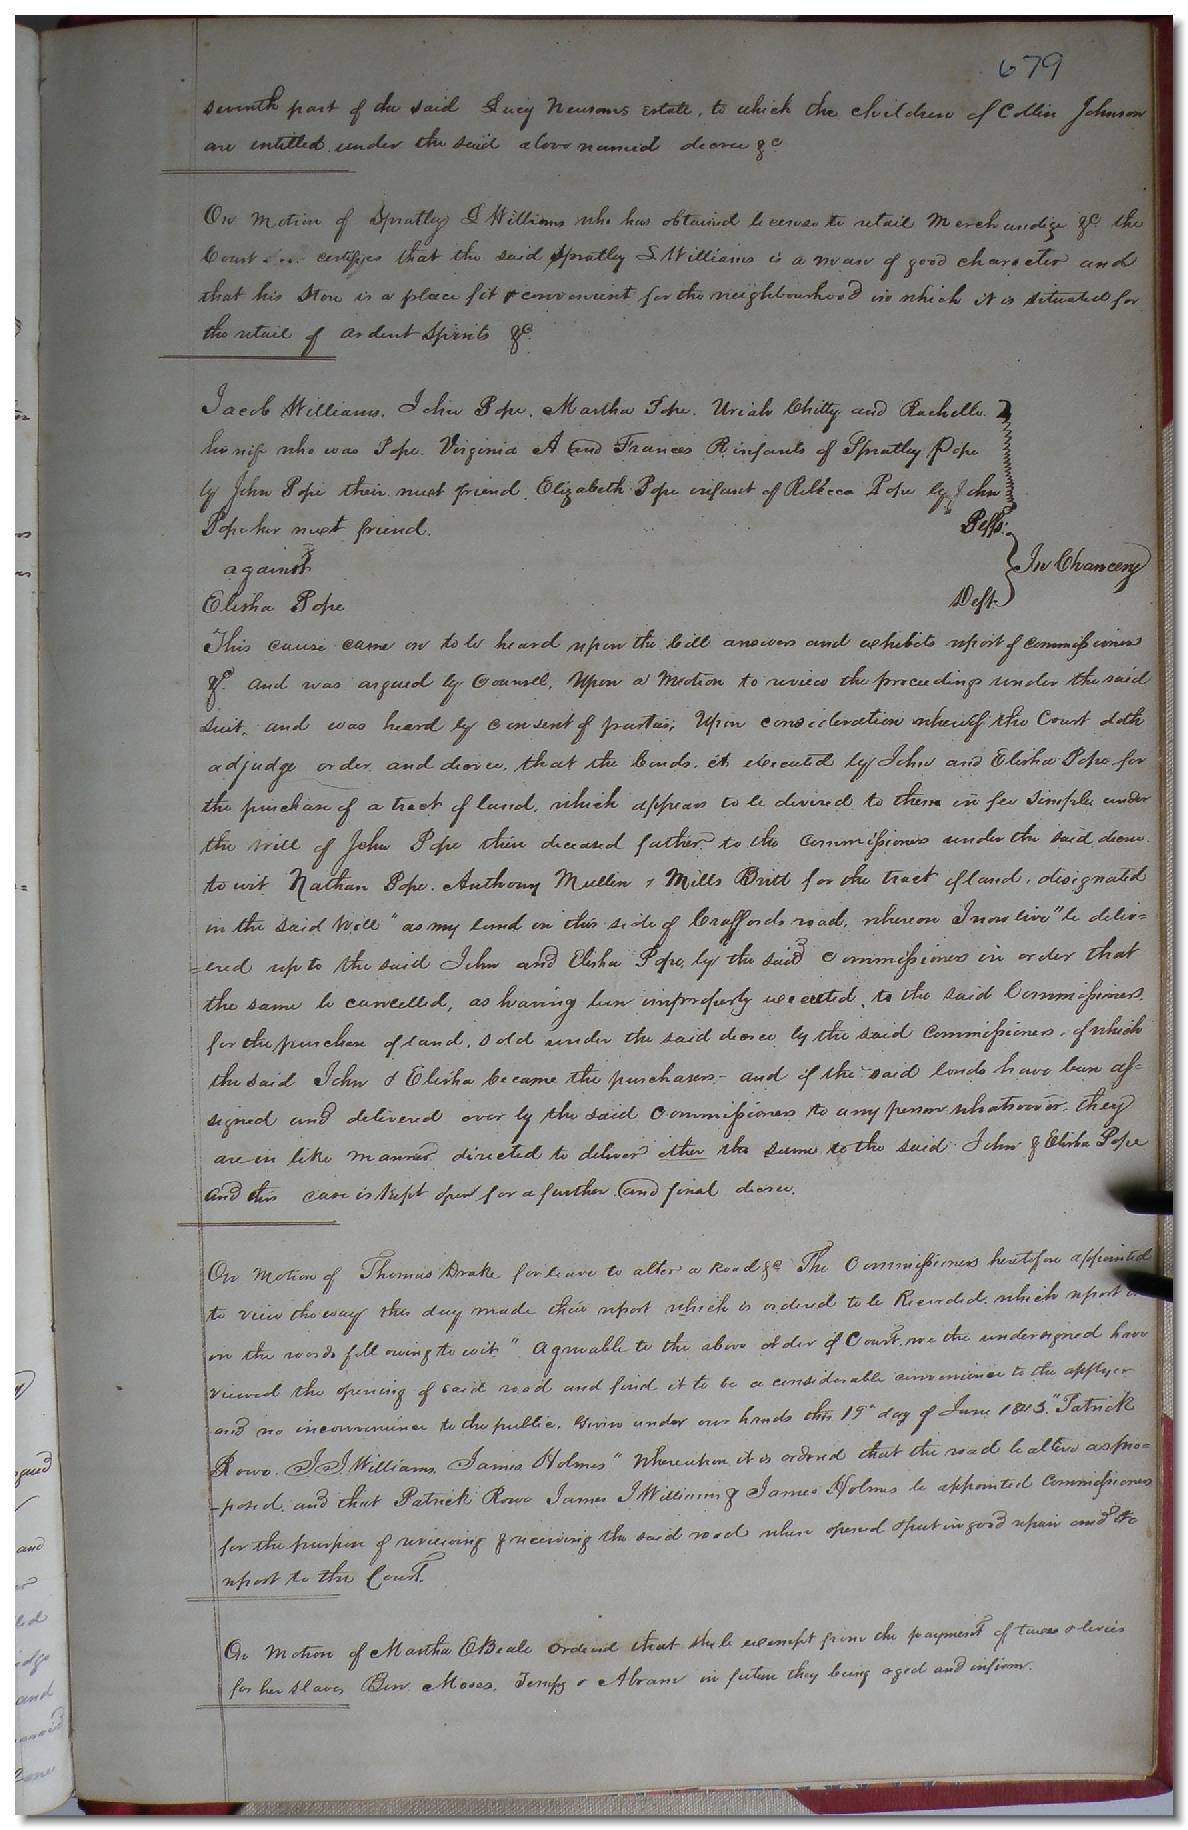 679
seventh part of the said Lucy Newsoms Estate, to which the children of Collin Johnson
are intitled under the said above named decree &c
On Motion of Spratley S Williams who has obtained license to retail Merchandize &c the
Court certifyes that the said Spratley S. Williams is a man of good character and
that his Store is a place fit & convenient for the neighbourhood in which it is situated for
the retail of ardent Spirits &c.
Jacob Williams, John Pope, Martha Pope, Uriah Chitty and Rachell
his wife who was Pope. Virginia A and Frances R infants of Spratley Pope
by John Pope their next friend, Elizabeth Pope infant of Rebecca Pope by John
Pope her next friend. Plffs.
against In Chancery
Elisha Pope Deft.
This cause came on to be heard upon the bill answers and exhibits report of commissioners
&c. and was argued by Counsel, Upon a Motion to review the proceedings under the said
suit, and was heard by consent of parties, Upon consideration whereof the Court doth
adjudge order and decree, that the bonds, executed by John and Elisha Pope for
the purchase of a tract of land, which appears to be devised to them in fee simple under
the will of John Pope their deceased father to the commissioners under the said decree
to wit Nathan Pope, Anthony Mullen & Mills Britt for the tract of land, designated
in the said Will "as my land on this side of Craffords road, whereon I now live" be deliv=
=ered up to the said John and Elisha Pope, by the said commissioners in order that
the same be cancelled, as having been improperly executed, to the said Commissioners
for the purchase of land, sold under the said decree by the said commissioners, of which
the said John & Elisha became the purchasers - and if the said bonds have been as=
signed and delivered over by the said Commissioners to any person whatsoever they
are in like manner directed to deliver the same to the said John & Elisha Pope
and this case is kept open for a further and final decree.
On Motion of Thomas Drake for leave to alter a Road &c The Commissioners heretofore appointed
to view the way this day made their report which is ordered to be Recorded, which report is
in the words following to wit. "Agreeable to the above order of Court, we the undersigned have
viewed the opening of said road and find it to be a considerable convenience to the applyer
and no inconvenience to the public. Given under our hands this 19th day of June 1843." Patrick
Rowe. J J Williams, James Holmes" Whereupon it is ordered that the road be altered as pro=
-posed, and that Patrick Rowe James J Williams & James Holmes be appointed commissioners
for the purpose of reviewing & receiving the said road when opened & put in good repair and to
report to the Court.
On Motion of Martha E Beale ordered that she be exempt from the payment of taxes & levies
for her slaves Ben, Moses, Tempy & Abram in future they being aged and infirm.